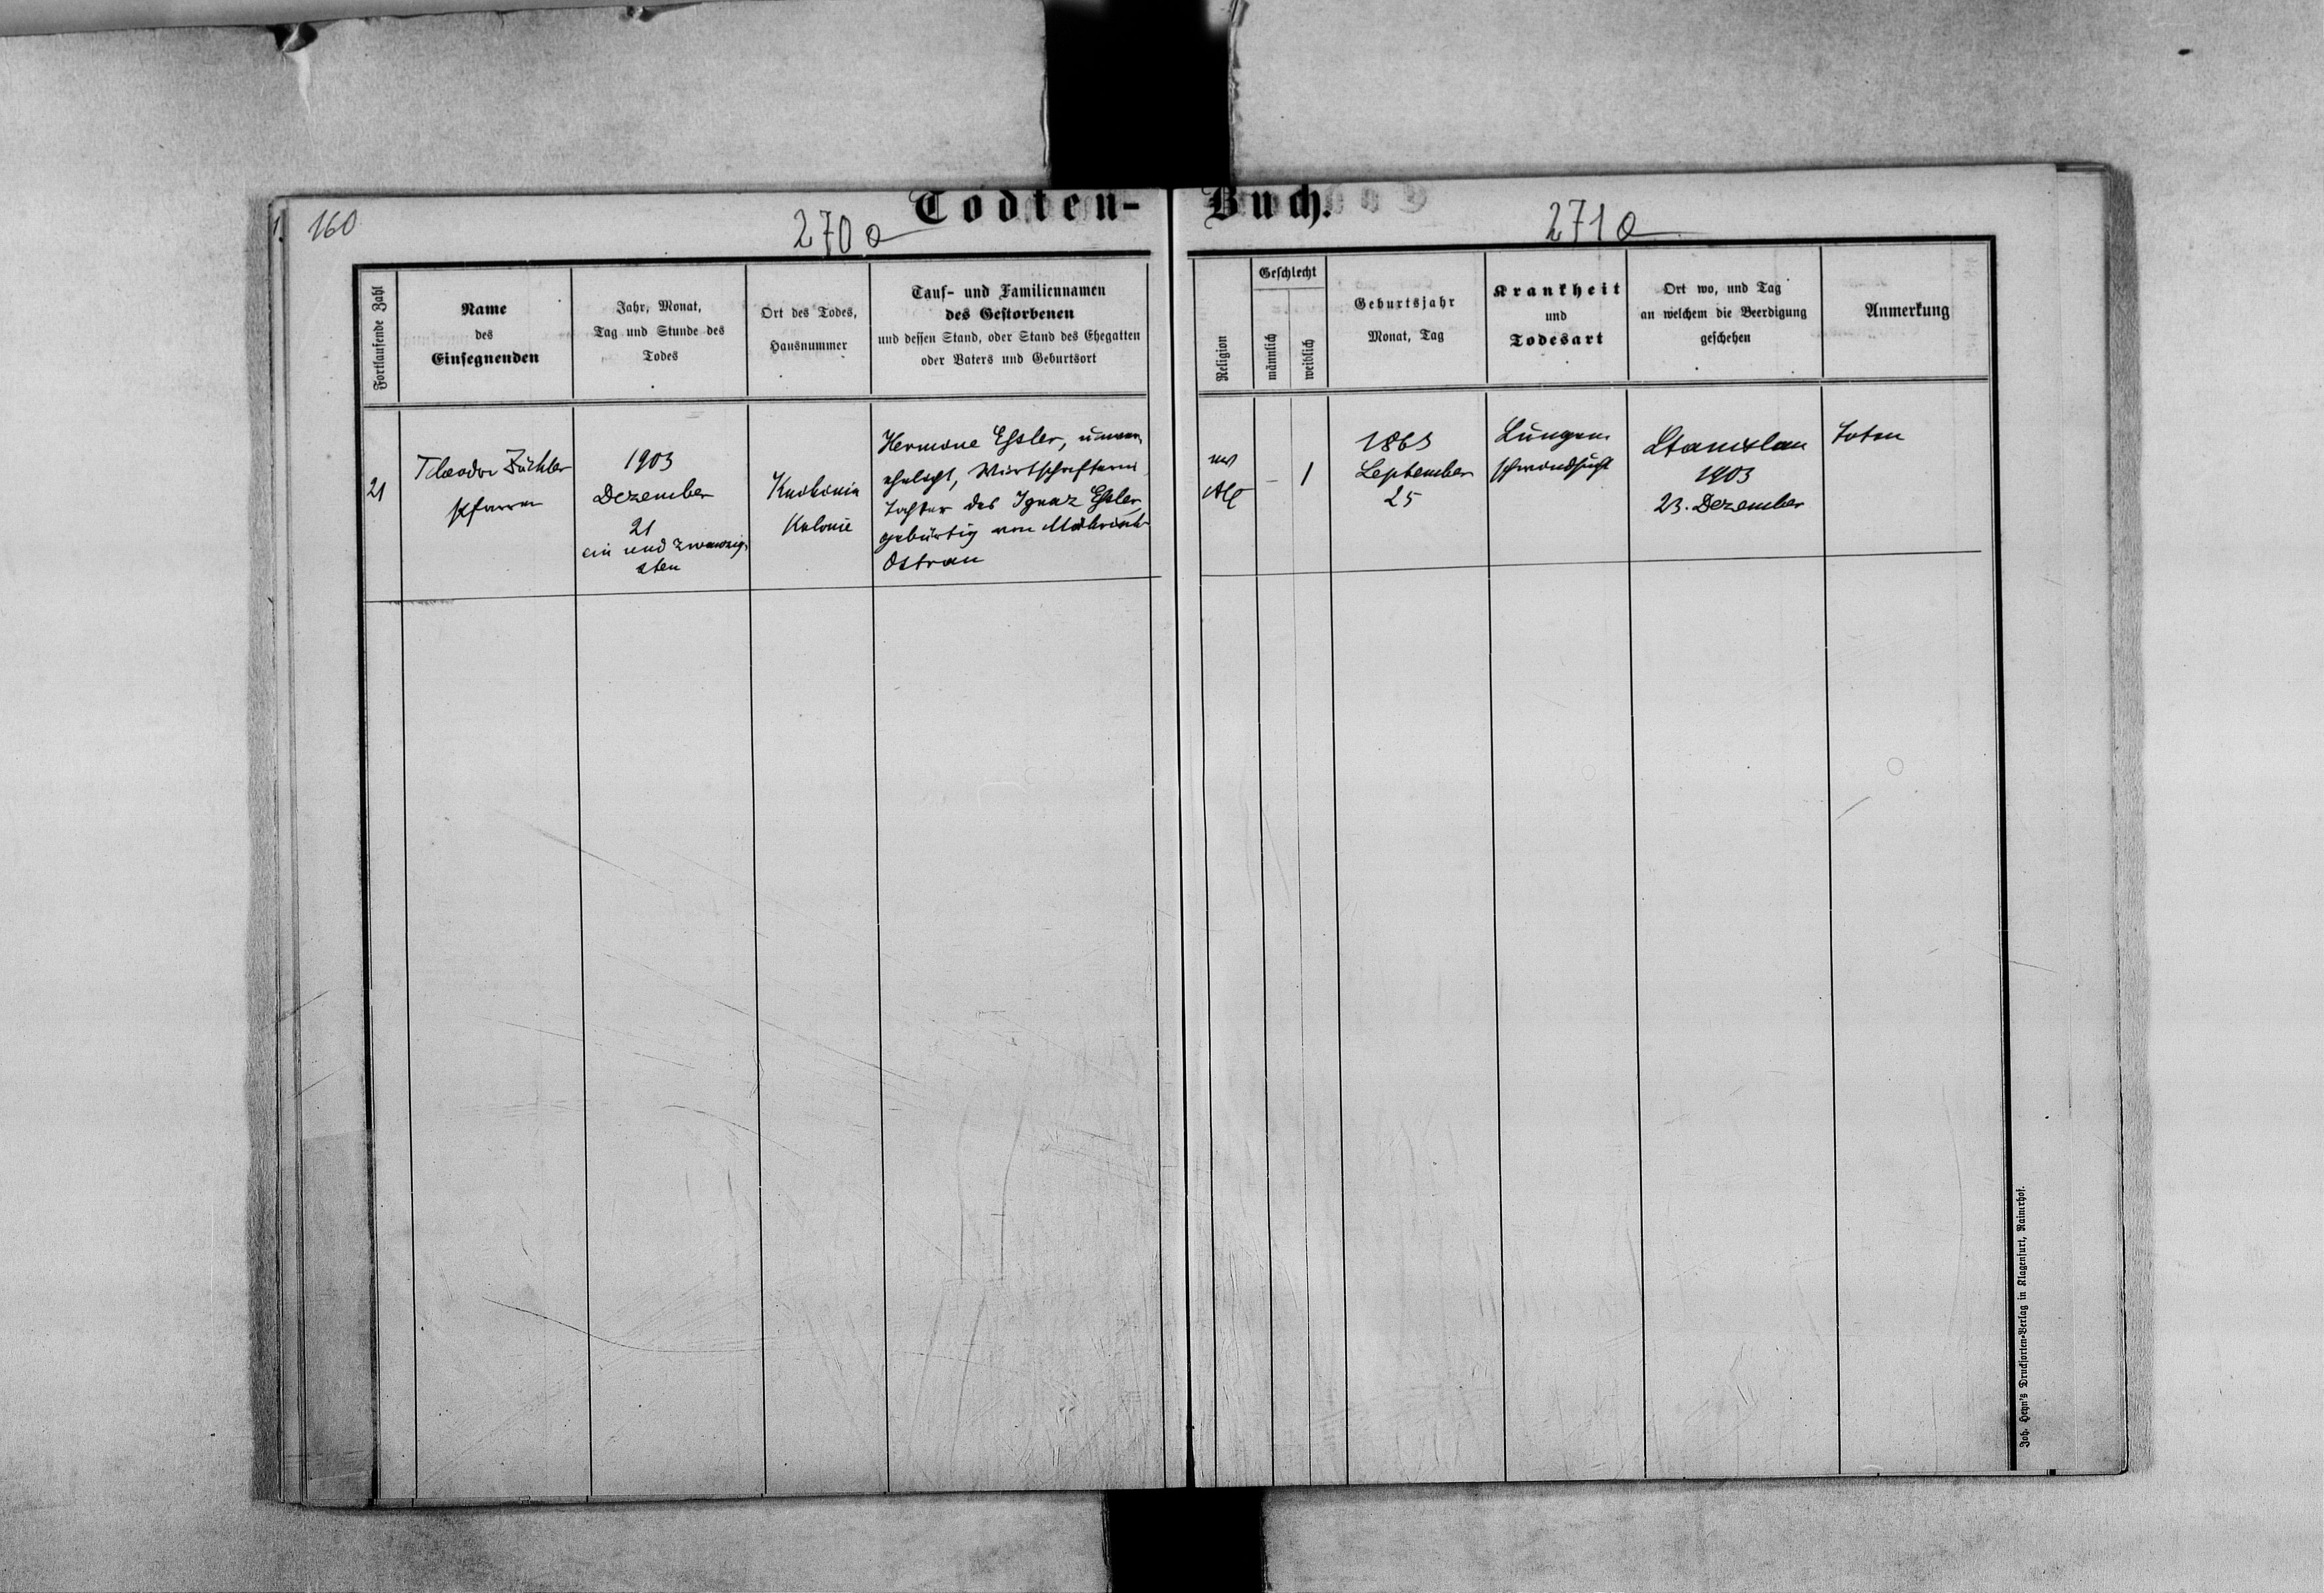 Todten-Buch.
160
270 a
271 a
Fortlaufende Zahl
Name
des
Einsegnenden
Jahr, Monat,
Tag und Stunde des
Todes
Ort des Todes,
Hausnummer
Tauf- und Familiennamen
des Gestorbenen
und dessen Stand, oder Stand des Ehegatten
oder Vaters und Geburtsort
Religion
Geschlecht
männlich
weiblich
Geburtsjahr
Monat, Tag
Krankheit
und
Todesart
Ort wo, und Tag
an welchem die Beerdigung
geschehen
Anmerkung
21
Theodor Zöckler
Pfarrer
1903
Dezember
21
ein und zwanzig-
sten
Knihinin
Kolonie
Hermine Essler, unver-
ehelicht, Wirtschafterin
Tochter des Ignaz Essler,
gebürtig von Mährisch-
Ostrau
ev
AC
–
1
September
25
Lungen-
schwindsucht
Stanislau
1903
23. Dezember
Joh. Heyn's Drucksorten-Verlag in Klagenfurt, Rainerhof.